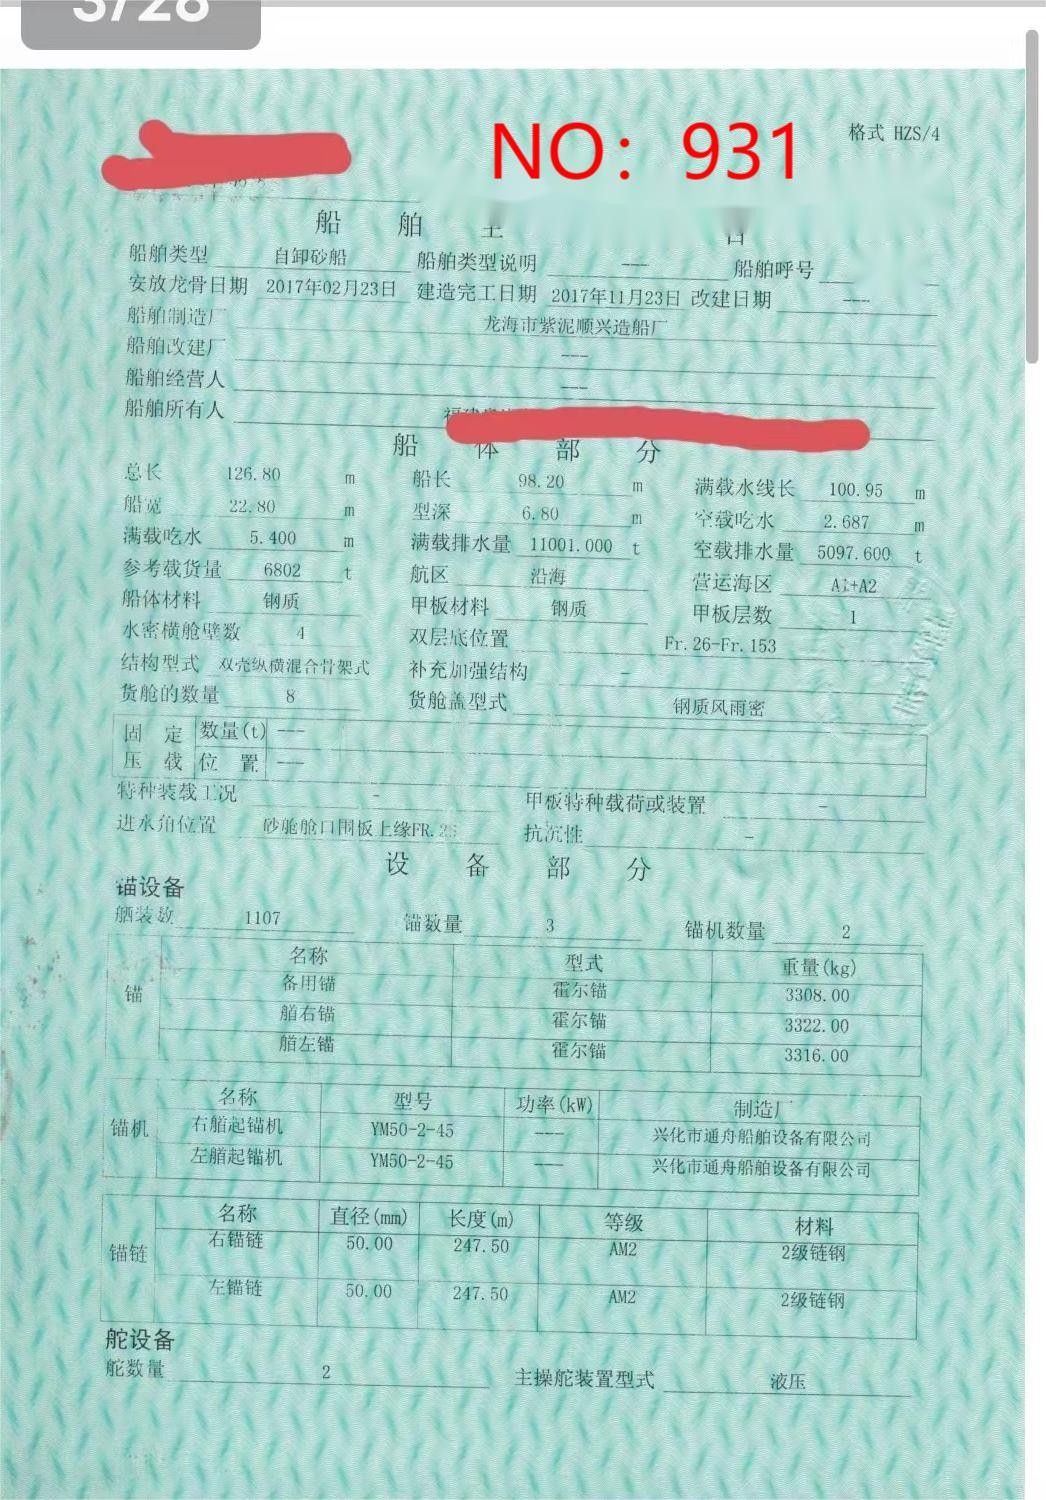 3/28
NO：931
格式 HZS/4
船 舶
船舶类型 自卸砂船 船舶类型说明 --- 船舶呼号
安放龙骨日期 2017年02月23日 建造完工日期 2017年11月23日 改建日期 ---
船舶制造厂 龙海市紫泥顺兴造船厂
船舶改建厂 ---
船舶经营人 ---
船舶所有人
船 体 部 分
总长 126.80 m 船长 98.20 m 满载水线长 100.95 m
船宽 22.80 m 型深 6.80 m 空载吃水 2.687 m
满载吃水 5.400 m 满载排水量 11001.000 t 空载排水量 5097.600 t
参考载货量 6802 t 航区 沿海 营运海区 A1+A2
船体材料 钢质 甲板材料 钢质 甲板层数 1
水密横舱壁数 4 双层底位置 Fr.26-Fr.153
结构型式 双壳纵横混合骨架式 补充加强结构 -
货舱的数量 8 货舱盖型式 钢质风雨密
固 定 数量(t) ---
压 载 位 置 ---
特种装载工况 - 甲板特种载荷或装置 -
进水角位置 砂舱舱口围板上缘FR. 抗沉性 -
设 备 部 分
锚设备
舾装数 1107 锚数量 3 锚机数量 2
名称 型式 重量(kg)
锚
备用锚 霍尔锚 3308.00
艏右锚 霍尔锚 3322.00
艏左锚 霍尔锚 3316.00
名称 型号 功率(kW) 制造厂
锚机
右艏起锚机 YM50-2-45 --- 兴化市通舟船舶设备有限公司
左艏起锚机 YM50-2-45 --- 兴化市通舟船舶设备有限公司
名称 直径(mm) 长度(m) 等级 材料
锚链
右锚链 50.00 247.50 AM2 2级链钢
左锚链 50.00 247.50 AM2 2级链钢
舵设备
舵数量 2 主操舵装置型式 液压